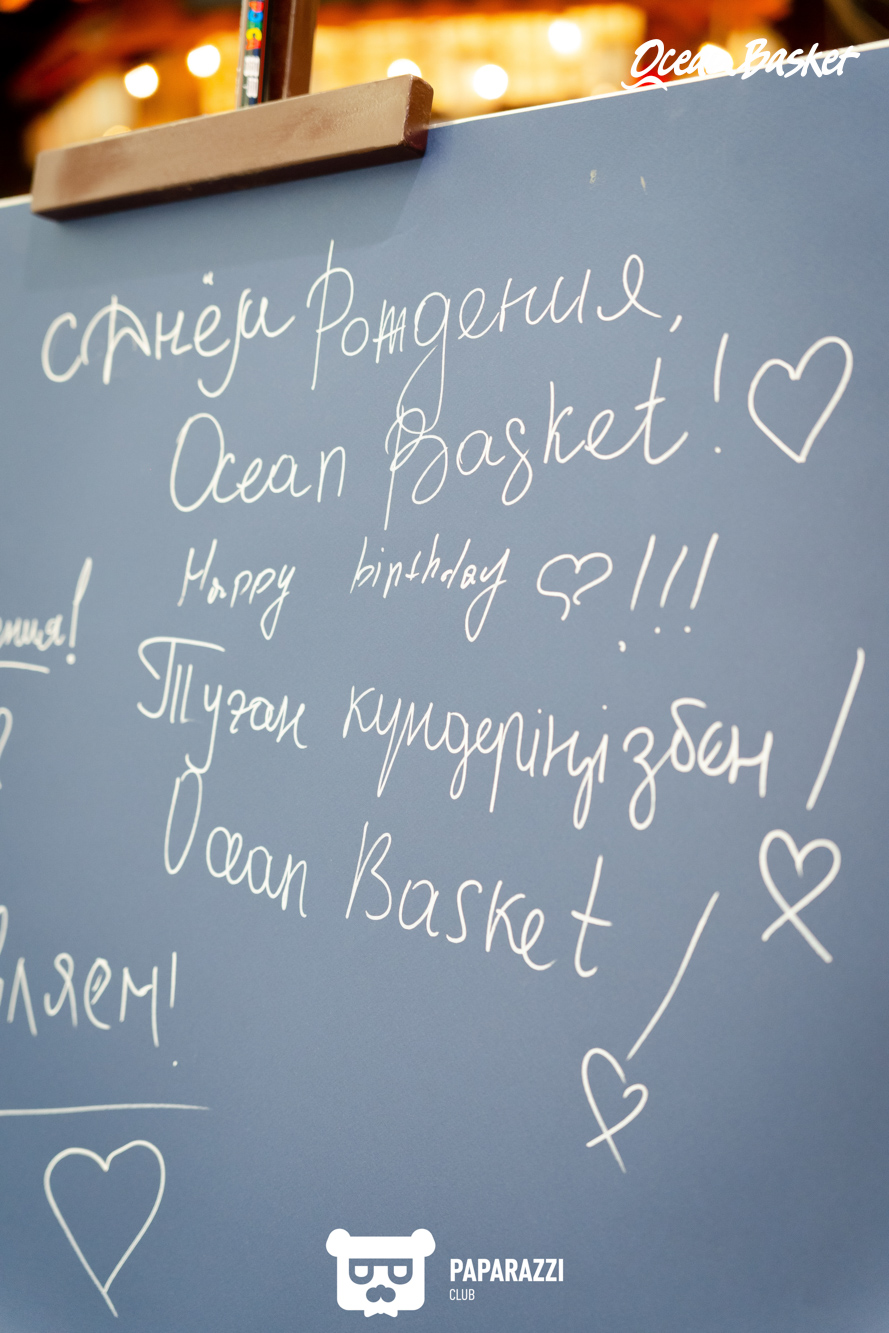 Ocean Basket
С Днём Рождения,
Ocean Basket! ♡
Happy birthday ♡ !!!
Туған күндеріңізбен!
Ocean Basket
ения!
вляем!
PAPARAZZI
CLUB